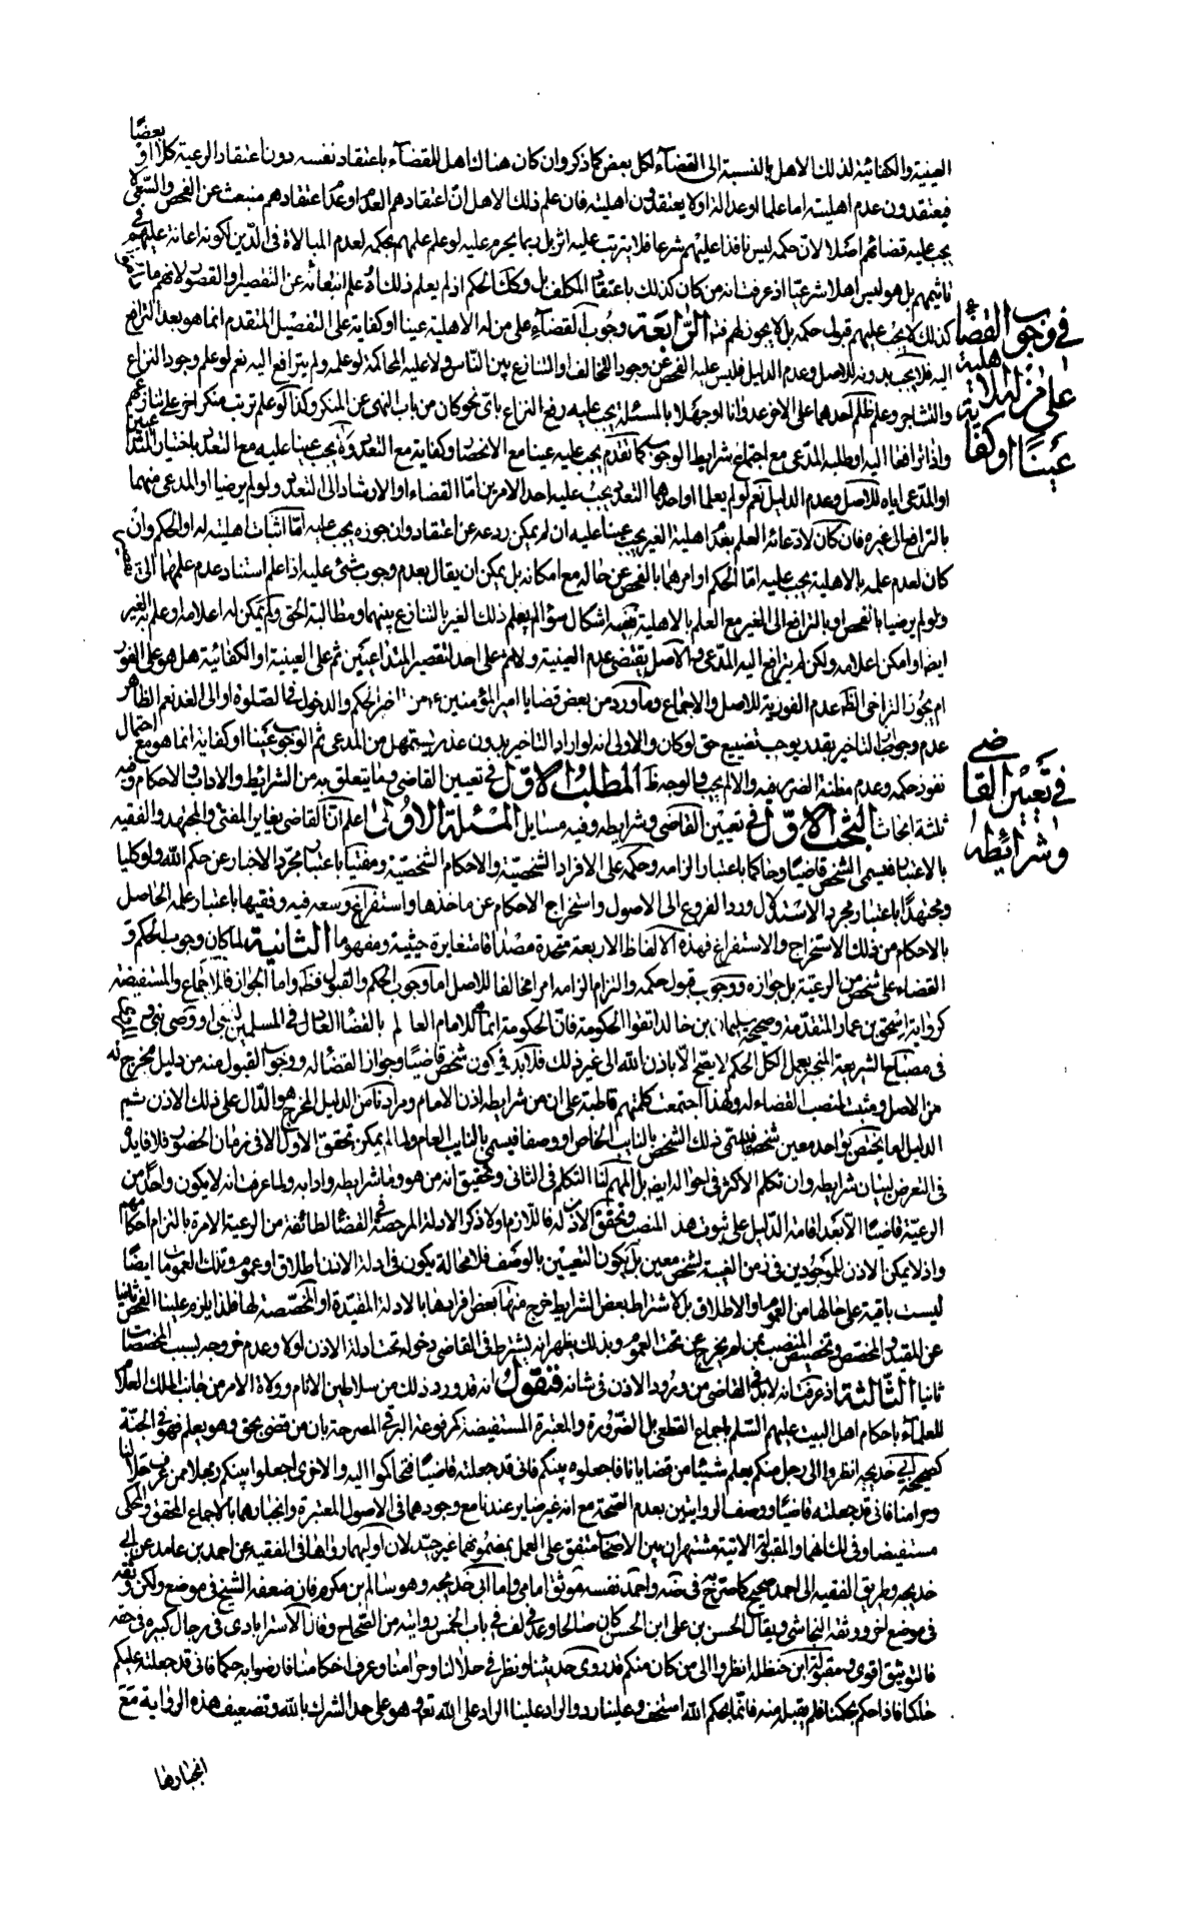 العينية والكفائية لذلك الاهل بالنسبة الى القضآء لكل بعض كما ذكر وان كان هناك اهل للقضآء باعتقاد نفسه دون اعتقاد الرعية كلا او بعضًا
فيعتقدون عدم اهليته اما علما او عدالة او لا يعتقدون اهليته فان علم ذلك الاهل انّ اعتقادهم العدم او عدم اعتقادهم منبعث عن الفحص والسّعى لا
يجب عليه قضائهم اصلا لانّ حكمه ليس نافذا عليهم شرعا فلا يترتب عليه اثر بل ربما يحرم عليه لو علم علمهم بحكمه لعدم المبالاة فى الدّين لكونه اعانة عليهم فى
تاثيمهم بل هو ليس اهلا شرعيّا اذ عرفت انه من كان كذلك باعتقاد المكلف بل وكك الحكم اذا لم يعلم ذلك او علم انبعاثه عن التقصير او القصور لانهم ما
كذلك لا يجب عليهم قبول حكمه بل لا يجوز لهم فته الرّابعة وجوب القضآء على من له الاهلية عينا او كفاية على التفصيل المتقدم انما هو بعد الترافع
اليه فلا يجب بدونه للاصل وعدم الدليل فليس عليه الفحص عن وجود التخالف او التنازع بين النّاس ولا عليه المحاكمة لو علمه ولم يترافع اليه نعم لو علم وجود النزاع
والتشاجر وعلم ظلم احدهما على الاخر عدوانا او جهلا بالمسئلة يجب عليه رفع النزاع باىّ نحو كان من باب النهى عن المنكر وكذا لو علم ترتب منكر اخر على تنازعهم
واذا ترافعا اليه او طلبه المدّعى مع اجتماع شرايط الوجوب كما تقدّم يجب عليه عينا مع الانحصار وكفاية مع التعدد ولا يجب عينا عليه مع التعدد باختيار المتداعيين
او المدّعى اياه للاصل وعدم الدليل نعم لو لم يعلما او احدهما التعدد يجب عليه احد الامرين امّا القضاء او الارشاد الى التعدد ولو لم يرضيا او المدعى منهما
بالترافع الى غيره فان كان لادعائه العلم بعدم اهلية الغير يجب عينا عليه ان لم يمكن ردعه عن اعتقاده وان جوزه يجب عليه امّا اثبات اهليته له او الحكم وان
كان لعدم علمه بالاهلية يجب عليه امّا الحكم او امرهما بالفحص عن حاله مع امكانه بل يمكن ان يقال بعدم وجوب شئ عليه اذا علم استناد عدم علمهما الى
ولو لم يرضيا بالفحص او بالترافع الى الغير مع العلم بالاهلية ففيه اشكال سؤ لم يعلم ذلك الغير بالتنازع بينهما ومطالبة الحق ولم يتمكن له اعلامه او علم الغير
ايضا او امكن اعلامه ولكن لم يترافع اليه المدّعى والاصل يقتضى عدم العينية ولا ثم على احد لتقصير المتداعيين ثم على العينية او الكفائية هل هو على الفور
ام يجوز التراخى الظّ عدم الفورية للاصل والاجماع وما ورد من بعض قضايا امير المؤمنين ع من تاخر الحكم والدخول فى الصّلوة او الى الغد نعم الظاهر
عدم وجواز التاخير بقدر يوجب تضييع حق لو كان والاولى انه لو اراد التاخير بدون عذر يستمهل من المدعى ثم الوجوب عينا او كفاية انما هو مع احتمال
نفوذ حكمه وعدم مظنة الضرر فيه والا لم يجب والوجه ظ المطلب الاوّل فى تعيين القاضى وما يتعلق به من الشرايط والاداب والاحكام وفيه
ثلثة ابحاث البحث الاوّل فى تعيين القاضى وشرايطه وفيه مسايل المسئلة الاولى اعلم انّ القاضى يغاير المفتى والمجتهد والفقيه
بالاعتبار فيسمى الشخص قاضيًا وحاكما باعتبار الزامه وحكمه على الافراد الشخصيّة والاحكام الشخصيّة ومفتيا باعتبار مجرّد الاخبار عن حكم اللّه ولو كليا
ومجتهدًا باعتبار مجرد الاستدلال ورد الفروع الى الاصول واستخراج الاحكام عن ماخذها واستفراغ وسعه فيه وفقيها باعتبار علمه الحاصل
بالاحكام من ذلك الاستخراج والاستفراغ فهذه الالفاظ الاربعة متحدة مصداقا متغايرة حيثية ومفهوما الثانية لما كان وجوب الحكم و
القضاء على شخص من الرعية بل جوازه ووجوب قبول حكمه والتزام الزامه امرا مخالفا للاصل اما وجوب الحكم والقبول فظ واما الجواز فالاجماع والمستفيضة
كرواية اسحق بن عمار المتقدّمة وصحيحة سليمان بن خالد اتقوا الحكومة فانّ الحكومة انما هى للامام العالم بالقضاء العادل فى المسلمين لنبى او وصى نبى و
فى مصباح الشريعة المنجبر بعمل الكل الحكم لا يصّح الّا باذن اللّه الى غير ذلك فلا بدّ فى كون شخص قاضيًا وجواز القضا له ووجوب القبول منه من دليل مخرج له
من الاصل ومثبت لمنصب القضاء له ولهذا اجتمعت كلمتهم قاطبة على ان من شرايطه اذن الامام ومرادنا من الدليل المخرج هو الدّال على ذلك الاذن ثم
الدليل اما يختص بواحد معين شخصا فيسمّى ذلك الشخص بالنايب الخاص او وصفا فيسمى بالنايب العام ولما لم يمكن تحقق الاوّل الا فى زمان الحضور فلا فايدة
فى التعرض لبيان شرايطه وان تكلم الاكثر فى احواله ايض بل المهم لنا التكلم فى الثانى وتحقيق انه من هو وما شرايطه وادابه ولما عرفت انه لا يكون واحد من
الرعيّة قاضيًا الّا بعد اقامة الدّليل على ثبوت هذا المنصب وتحقّق الاذن له فاللازم اولا ذكر الادلة المرخصة فى القضا لطائفة من الرعية الامرة بالتزام احكامهم
واذ لا يمكن الاذن للموجودين فى زمن الغيبة لشخص معين بل يكون التعيين بالوصف فلا محالة يكون فى ادلة الاذن اطلاق او عموم وتلك العمومات ايضًا
ليست باقية على حالها من العموم والاطلاق بل لاشتراط بعض الشرايط خرج منها بعض افرادها بالادلة المقيّدة او المخصّصة لها فلذا يلزم علينا الفحص ثانيا
عن المقيد والمخصّص وتخصيص المنصب بمن لم يخرج عن تحت العموم وبذلك يظهر انه يشترط فى القاضى دخوله تحت ادلة الاذن اولا وعدم خروجه بسبب المخصصات
ثانيا الثّالثة اذ عرفت انه لا بد فى القاضى من ورود الاذن فى شانه فنقول انه قد ورد ذلك من سلاطين الانام وولاة الامر من جانب الملك العلام
للعلمآء باحكام اهل البيت عليهم السّلم بالاجماع القطعى بل الضّرورة والمعتبرة المستفيضة كمرفوعة البرقى المصرحة بان من قضى بحق وهو يعلم فهو فى الجنّة
كصحيحة ابى خديجه انظروا الى رجل منكم يعلم شيئا من قضايانا فاجعلوه بينكم فانى قد جعلته قاضيًا فتحاكموا اليه والاخرى اجعلوا بينكم رجلا ممن عرف حلالنا
وحرامنا فانى قد جعلته قاضيًا ووصف الروايتين بعدم الصّحة مع انه غير ضاير عندنا مع وجودهما فى الاصول المعتبرة وانجبارهما بالاجماع المحقق والمحكى
مستفيضا وفى لك انهما والمقبولة الاتية مشتهران بين الاصحاب متفق على العمل بمضمونهما غير جيّد لان اوليهما رواها فى الفقيه عن احمد بن عامد عن ابى
خديجه وطريق الفقيه الى احمد صحيح كما صّرح به فى ضه واحمد نفسه موثق امامى واما ابى خديجه وهو سالم بن مكرم فان ضعفه الشيخ فى موضع ولكن وثقه
فى موضع اخر ووثقه النجاشى وبقال الحسن بن على ابن الحسن كان صالحا وعد فى لف فى باب الخمس روايته من الصّحاح وقال الاسترابادى فى رجال كبيره فى حقه
فالتوثيق اقوى ومقبولة ابن حنظله انظروا الى من كان منكم قد روى حديثنا ونظر فى حلالنا وحرامنا وعرف احكامنا فارضوا به حكما فانى قد جعلته عليكم
حاكما فاذا حكم بحكمنا فلم يقبله منه فانما بحكم اللّه استخف وعلينا رد والراد علينا الراد على اللّه تعو وهو على حد الشرك باللّه وتضعيف هذه الرواية مع
انجبارها
فى وجوب القضاء
على من له الاهلية
عينًا او كفاية
فى تعيين القاضى
وشرائطه